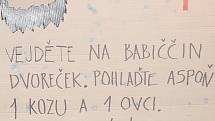 VEJDĚTE NA BABIČČIN
DVOREČEK. POHLAĎTE ASPOŇ
1 KOZU A 1 OVCI.